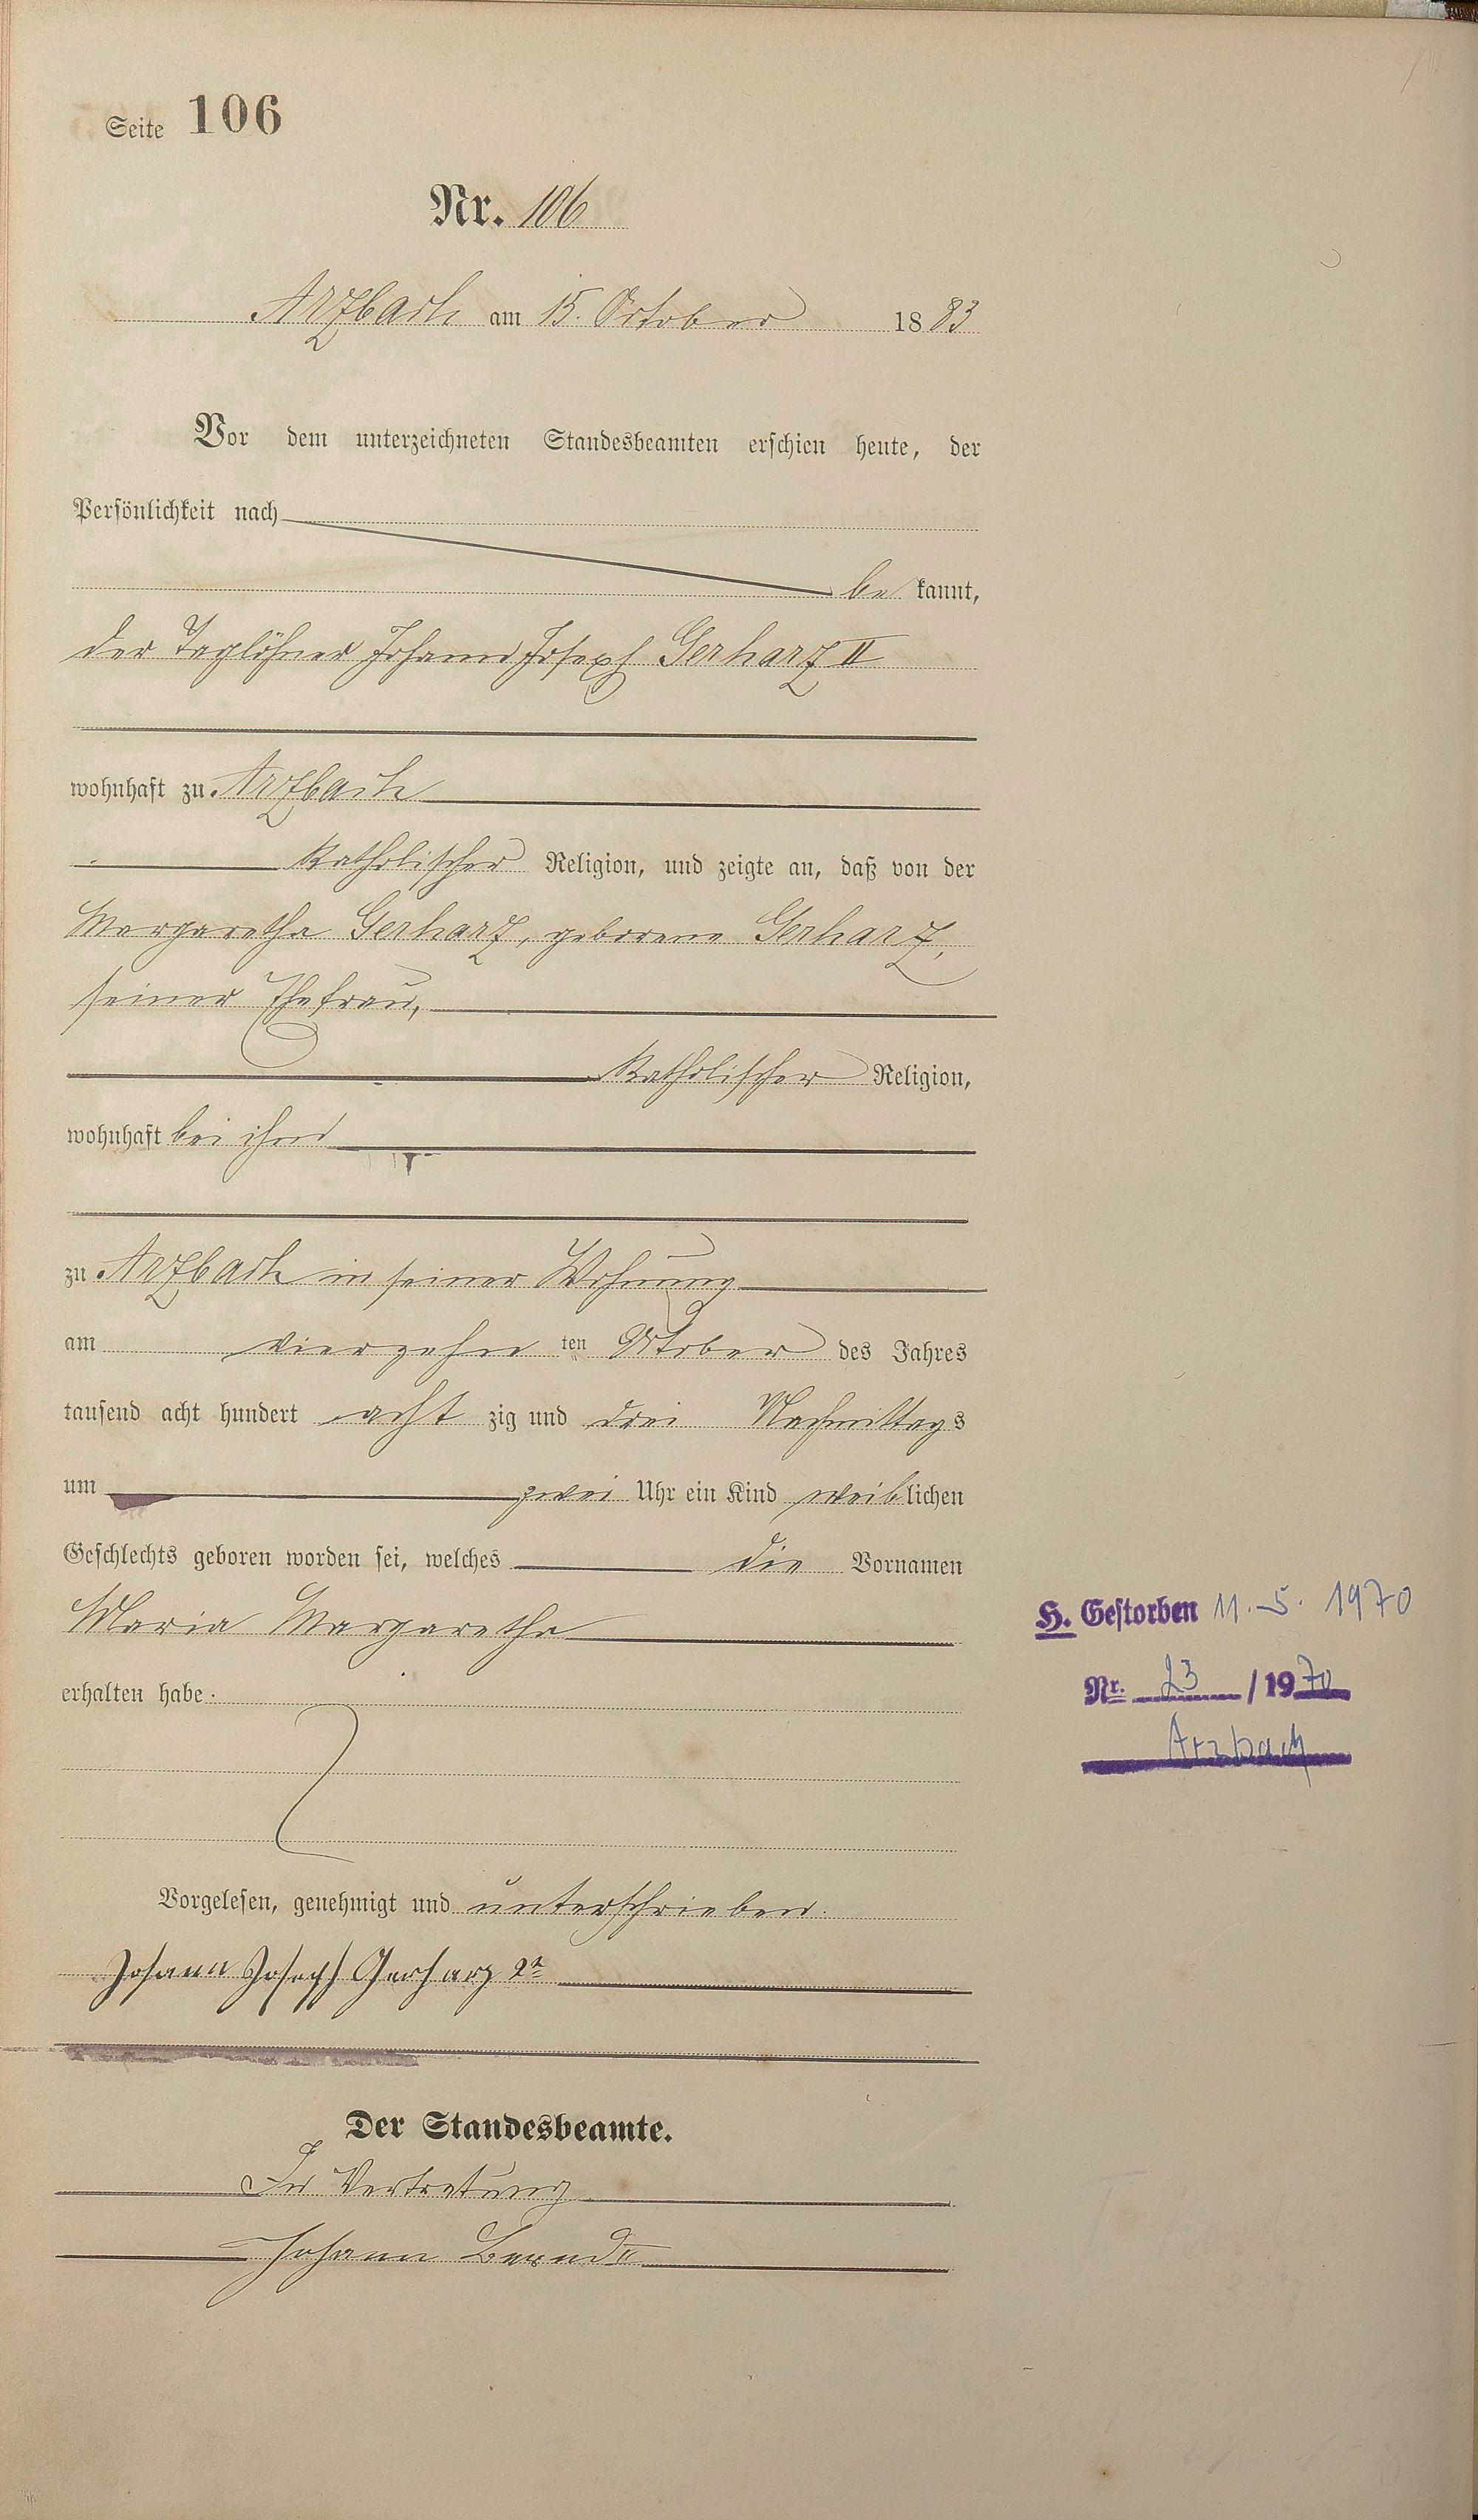 Seite 106
Nr. 106
Arzbach am 15. October 1883
Vor dem unterzeichneten Standesbeamten erschien heute, der
Persönlichkeit nach
bekannt,
der Taglöhner Johann Joseph Gerharz II
wohnhaft zu Arzbach
katholischer Religion, und zeigte an, daß von der
Margaretha Gerharz, geborene Gerharz,
seiner Ehefrau,
katholischer Religion,
wohnhaft bei ihm
zu Arzbach in seiner Wohnung
am vierzehnten October des Jahres
tausend acht hundert achtzig und drei Nachmittags
um zwei Uhr ein Kind weiblichen
Geschlechts geboren worden sei, welches die Vornamen
Maria Margaretha
H. Gestorben 11.5.1970
erhalten habe.
Nr. 23 / 1970
Arzbach
Vorgelesen, genehmigt und unterschrieben.
Johann Joseph Gerharz 2t
Der Standesbeamte.
In Vertretung
Johann